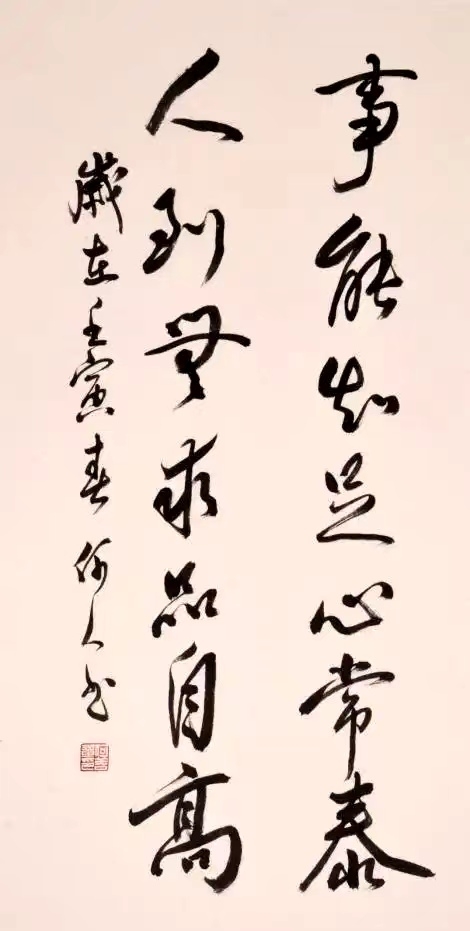 事能知足心常泰
人到無求品自高
歲在壬寅春何人书